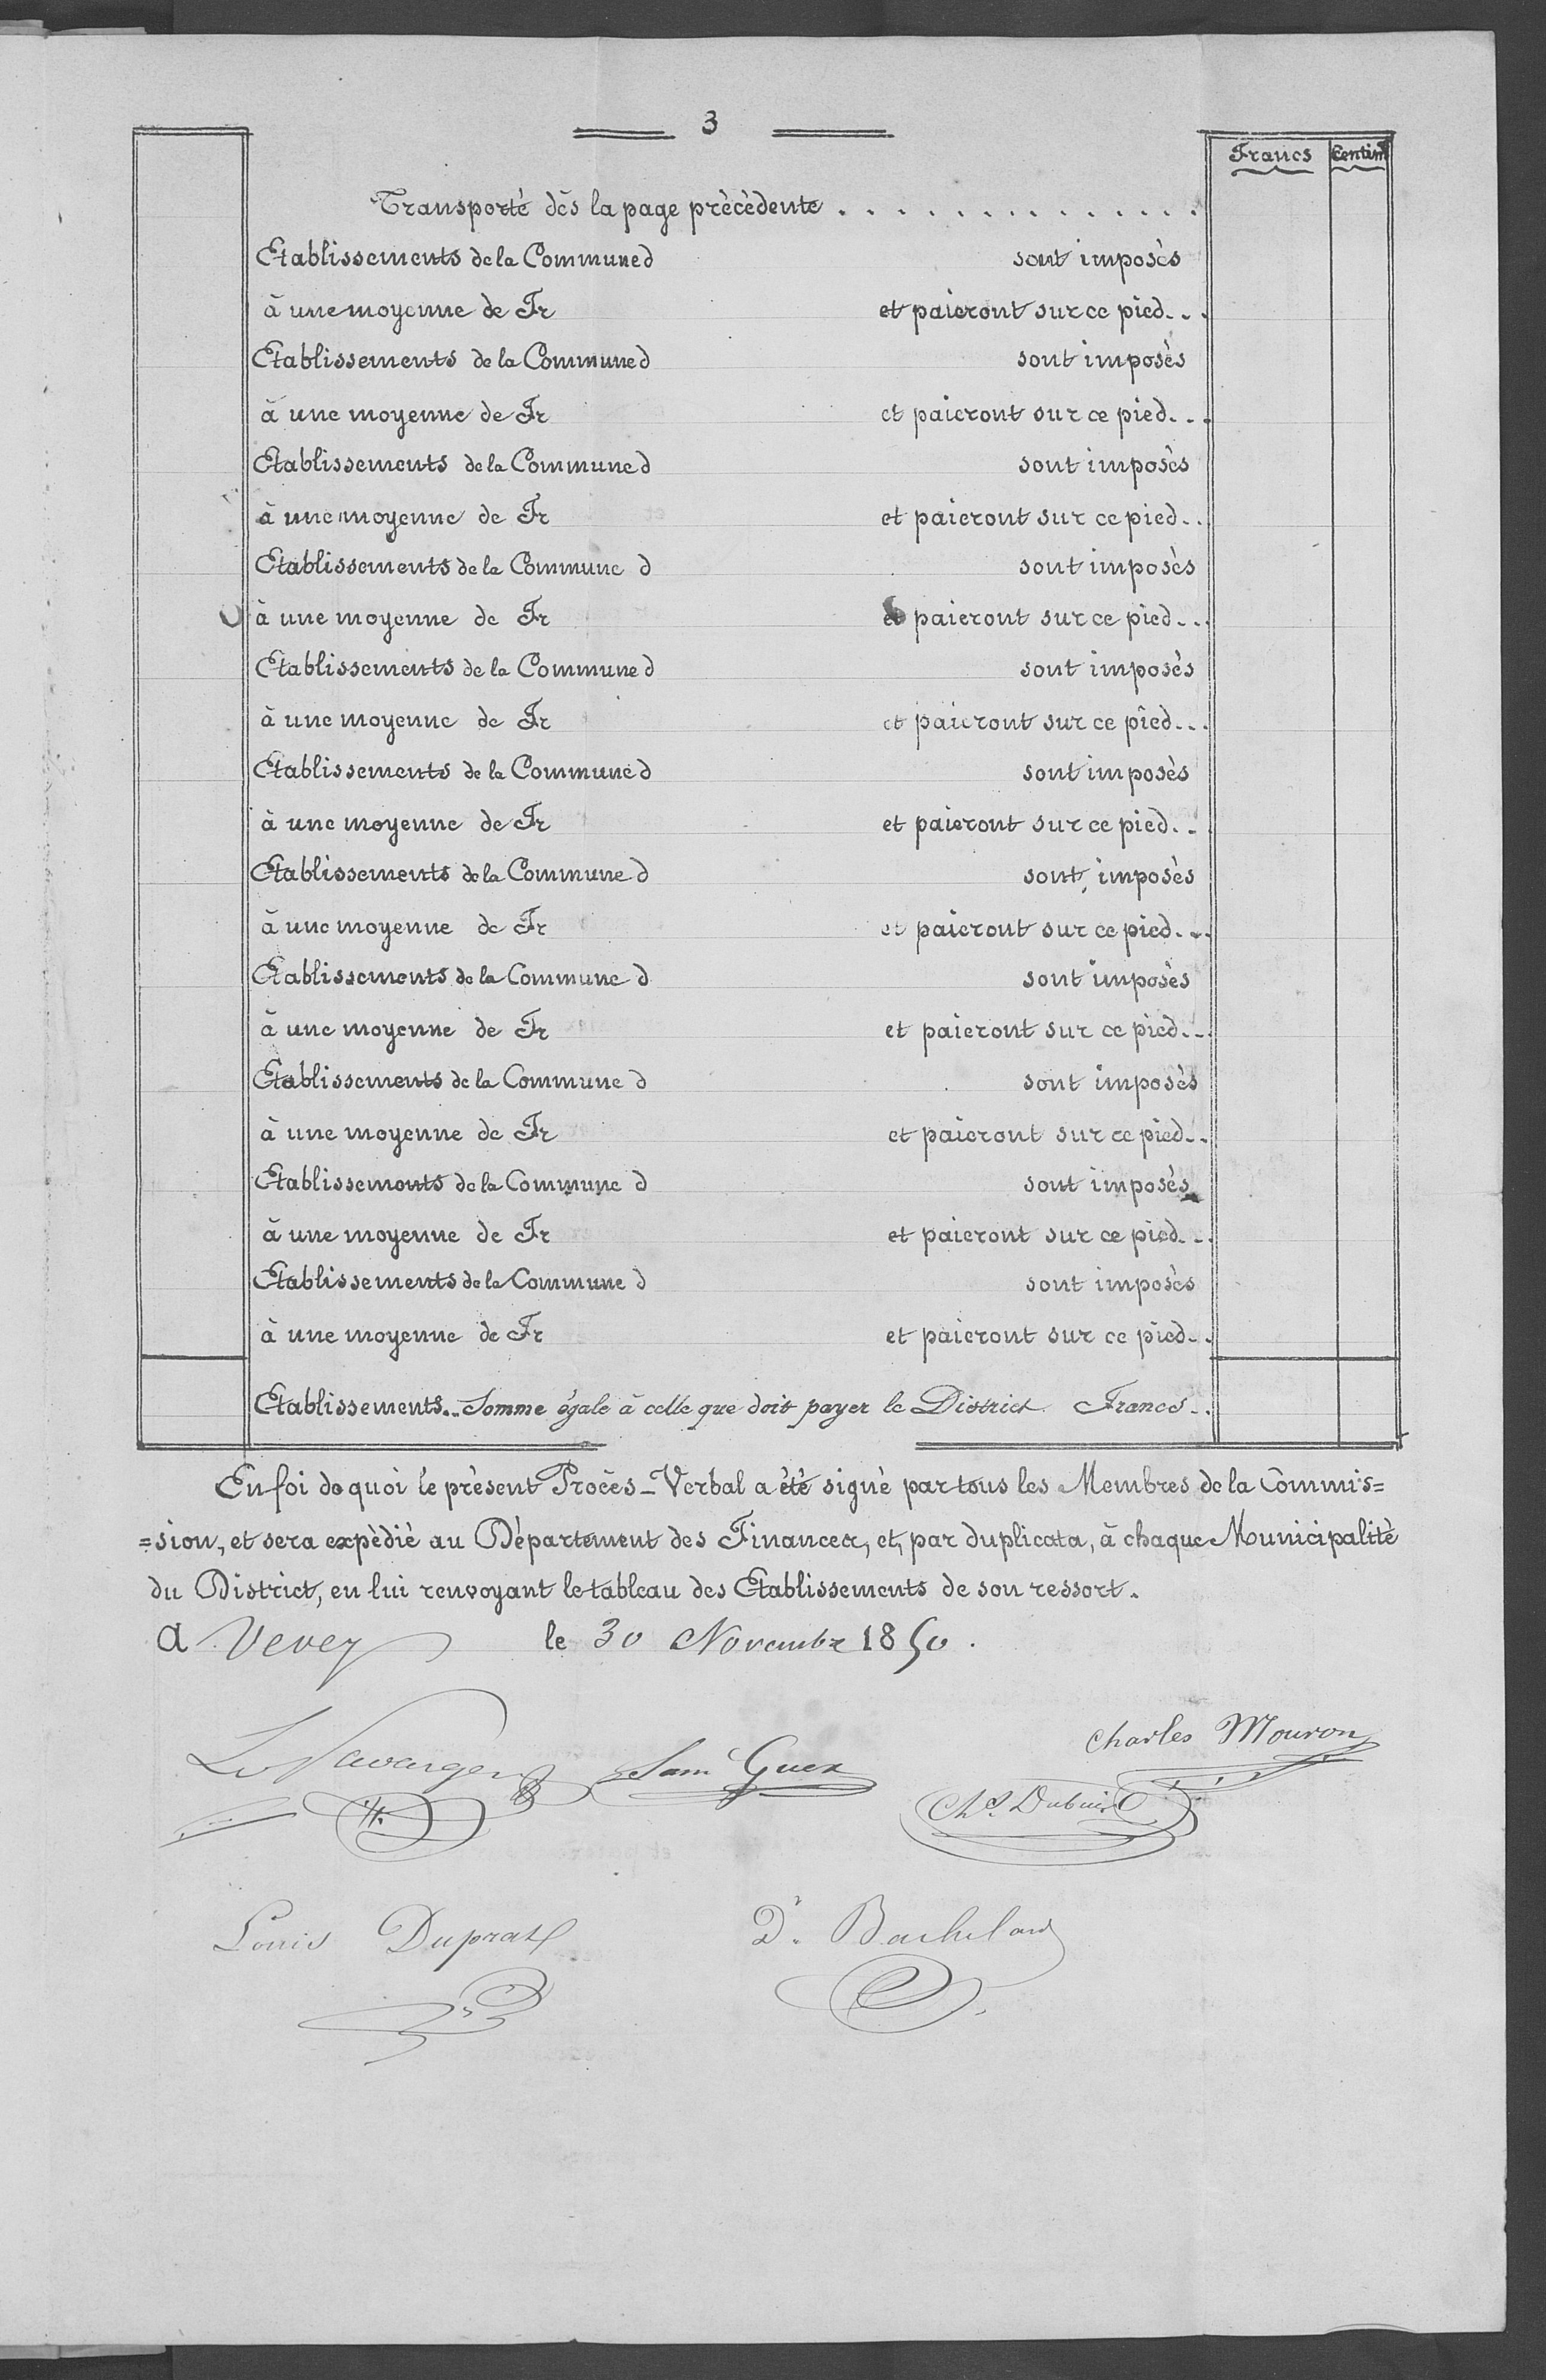 3
Francs Centimes
Transporté dès la page précédente . . . . . . . . . . . . .
Etablissements de la Commune d sont imposés
à une moyenne de Fr et paieront sur ce pied . . .
Etablissements de la Commune d sont imposés
à une moyenne de Fr et paieront sur ce pied . . .
Etablissements de la Commune d sont imposés
à une moyenne de Fr et paieront sur ce pied . .
Etablissements de la Commune d sont imposés
à une moyenne de Fr et paieront sur ce pied . . .
Etablissements de la Commune d sont imposés
à une moyenne de Fr et paieront sur ce pied . . .
Etablissements de la Commune d sont imposés
à une moyenne de Fr et paieront sur ce pied . .
Etablissements de la Commune d sont imposés
à une moyenne de Fr et paieront sur ce pied . . .
Etablissements de la Commune d sont imposés
à une moyenne de Fr et paieront sur ce pied . . .
Etablissements de la Commune d sont imposés
à une moyenne de Fr et paieront sur ce pied . .
Etablissements de la Commune d sont imposés
à une moyenne de Fr et paieront sur ce pied . . .
Etablissements de la Commune d sont imposés
à une moyenne de Fr et paieront sur ce pied . .
Etablissements. Somme égale à celle que doit payer le District Francs . .
En foi de quoi le présent Procès-Verbal a été signé par tous les Membres de la Commis=
=sion, et sera expédié au Département des Finances, et, par duplicata, à chaque Municipalité
du District, en lui renvoyant le tableau des Etablissements de son ressort.
A Vevey le 30 Novembre 1850.
Charles Mouron
Sam Guex
Chs. Dubuis
Louis Duprat
Dr. Bachelard